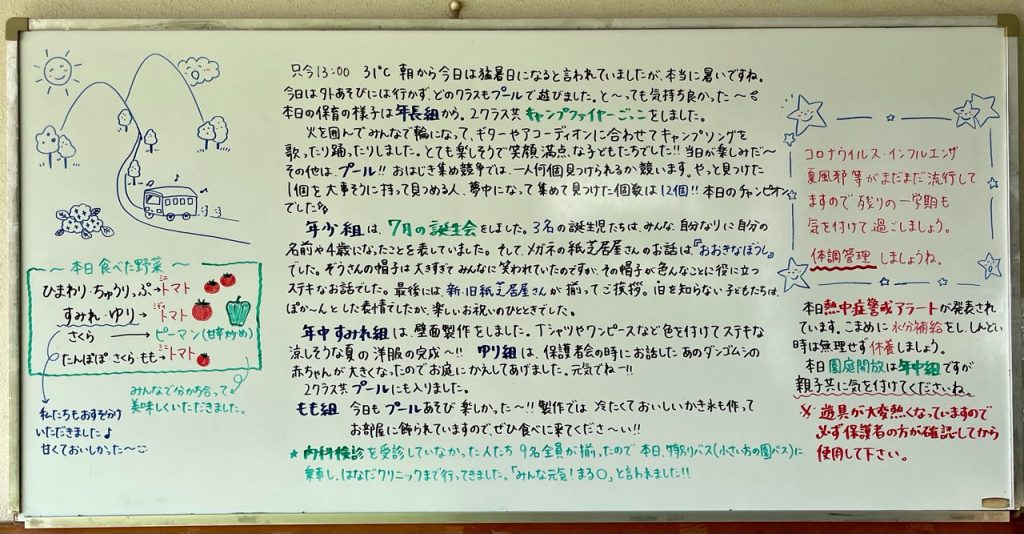 只今13:00 31℃ 朝から今日は猛暑日になると言われていましたが、本当に暑いですね。
今日は外あそびには行かず、どのクラスもプールで遊びました。と〜っても気持ち良かった〜
本日の保育の様子は年長組から。2クラス共キャンプファイヤーごっこをしました。
火を囲んでみんなで輪になって、ギターやアコーディオンに合わせてキャンプソングを
歌ったり踊ったりしました。とても楽しそうで笑顔満点な子どもたちでした!!当日が楽しみだ〜
その他は、プール!!おはじき集め競争では、一人何個見つけられるか競います。やっと見つけた
1個を大事そうに持って見つめる人、夢中になって集めて見つけた個数は12個!!本日のチャンピオン
でした
年少組は、7月の誕生会をしました。3名の誕生児たちは、みんな自分なりに自分の
名前や4歳になったことを表していました。そして、メガネの紙芝居屋さんのお話は、『おおきなぼうし』
でした。ぞうさんの帽子は大きすぎてみんなに笑われていたのですが、その帽子が色んなことに役に立つ
ステキなお話でした。最後には、新・旧紙芝居屋さんが揃ってご挨拶。旧を知らない子どもたちは、
ぽか〜んとした表情でしたが、楽しいお祝いのひとときでした。
年中すみれ組は、壁面製作をしました。Tシャツやワンピースなど色を付けてステキな
涼しそうな夏の洋服の完成〜!!ゆり組は、保護者会の時にお話したあのダンゴムシの
赤ちゃんが大きくなったのでお庭にかえしてあげました。元気でねー!!
2クラスプールにも入りました。
もも組 今日もプールあそび楽しかった〜!!製作では冷たくておいしいかき氷も作って
お部屋に飾られていますのでぜひ食べに来てくださ〜い!!
★内科検診を受診していなかった人たち9名全員が揃ったので本日、特別バス(小さい方の園バス)に
乗車し、はなだクリニックまで行ってきました。「みんな元気!まる○」と言われました!!
〜本日食べた野菜〜
ひまわり・ちゅうりっぷ→ミニトマト
すみれ・ゆり→ミニトマト
さくら→ピーマン(甘辛炒め)
たんぽぽ さくら もも→ミニトマト
私たちもおすそ分け
いただきました♪
甘くておいしかった〜
みんなで分かち合って
美味しくいただきました。
コロナウイルス・インフルエンザ
夏風邪等がまだまだ流行して
ますので残りの一学期も
気を付けて過ごしましょう。
体調管理しましょうね。
本日熱中症警戒アラートが発表され
ています。こまめに水分補給をし、しんどい
時は無理せず休養しましょう。
本日園庭開放は年中組ですが
親子共に気を付けてくださいね。
※遊具が大変熱くなっていますので
必ず保護者の方が確認してから
使用して下さい。